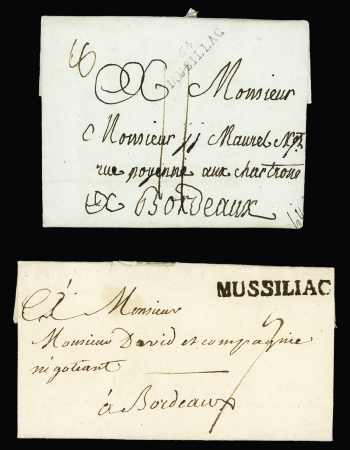 Monsieur
Monsieur JJ Maurel Nt
rue poyenne aux chartrons
A Bordeaux
MUSSILIAC
À Monsieur
Monsieur David et compagnie
négotiant
7
à Bordeaux